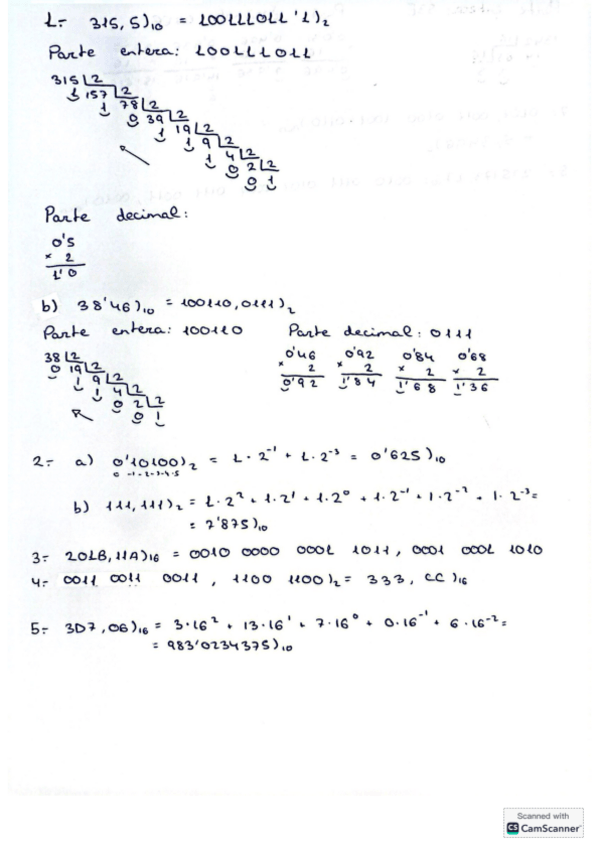 1.- 315,5)10 = 100111011'1)2
Parte entera: 100111011
315 |2
1 157 |2
1 78 |2
0 39 |2
1 19 |2
1 9 |2
1 4 |2
0 2 |2
0 1
Parte decimal:
0'5
x 2
1'0
b) 38'46)10 = 100110,0111)2
Parte entera: 100110 Parte decimal: 0111
38 |2
0 19 |2
1 9 |2
1 4 |2
0 2 |2
0 1
0'46 0'92 0'84 0'68
x 2 x 2 x 2 x 2
0'92 1'84 1'68 1'36
2.- a) 0'10100)2 = 1·2^-1 + 1·2^-3 = 0'625)10
0 -1 -2 -3 -4 -5
b) 111,111)2 = 1·2^2 + 1·2^1 + 1·2^0 + 1·2^-1 + 1·2^-2 + 1·2^-3 =
= 7'875)10
3.- 201B,11A)16 = 0010 0000 0001 1011, 0001 0001 1010
4.- 0011 0011 0011, 1100 1100)2 = 333,CC)16
5.- 3D7,06)16 = 3·16^2 + 13·16^1 + 7·16^0 + 0·16^-1 + 6·16^-2 =
= 983'0234375)10
Scanned with
CS CamScanner